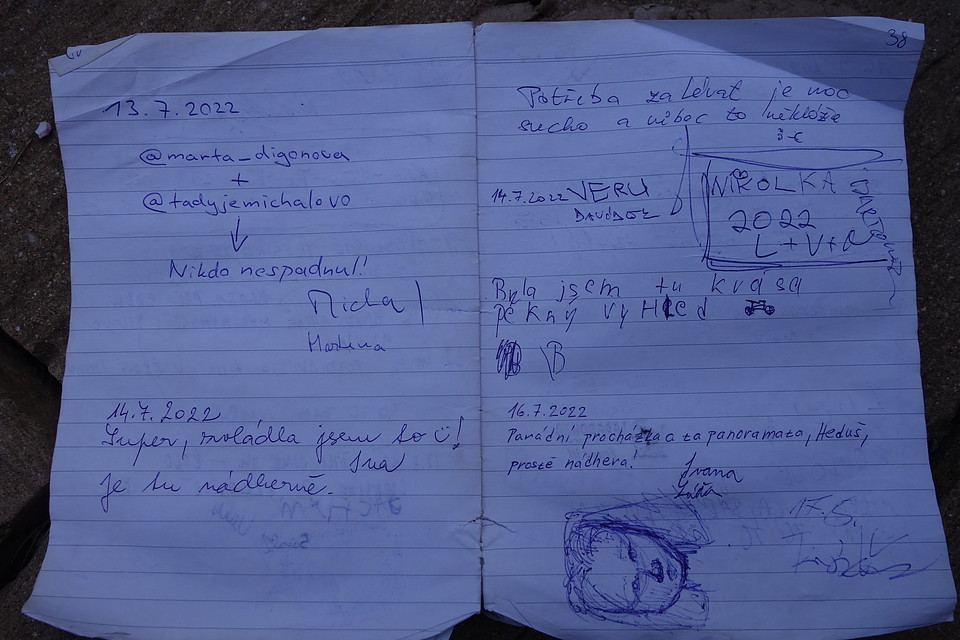 13.7.2022
@marta_digonova
+
@tadyjemichalovo
Nikdo nespadnul!
Micha
Martina
14.7.2022
Super, zvládla jsem to !
Iva
je tu nádherně.
38
Potřeba zalévat je moc
sucho a vůbec to
14.7.2022 VERU
NIKOLKA
2022
L+V+
Byla jsem tu krása
pěkný výHled
B
16.7.2022
Parádní procházka a ta panoramata, Heduš,
prostě nádhera!
Ivana
17.5.